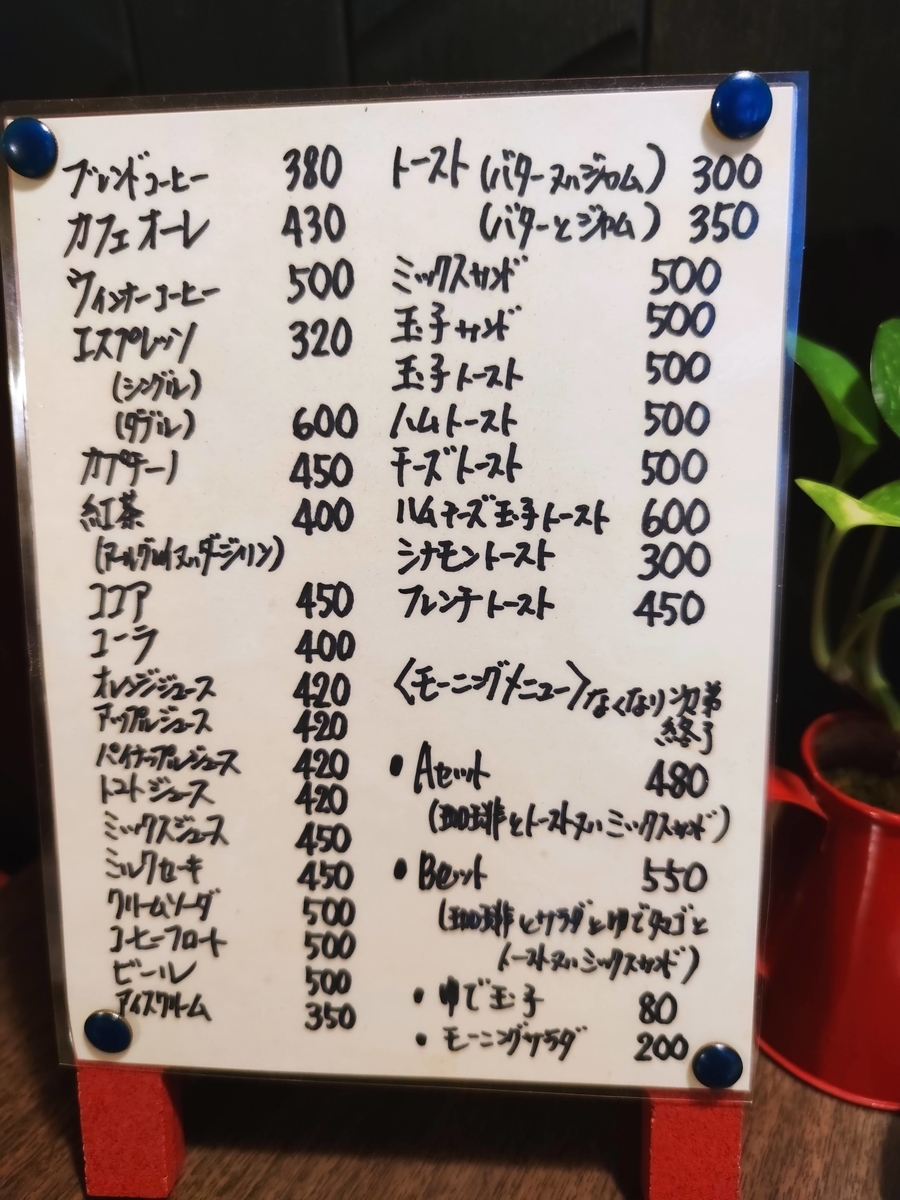 ブレンドコーヒー 380
カフェオーレ 430
ウィンナーコーヒー 500
エスプレッソ 320
(シングル)
(ダブル) 600
カプチーノ 450
紅茶 400
(アールグレイ又ハダージリン)
ココア 450
コーラ 400
オレンジジュース 420
アップルジュース 420
パイナップルジュース 420
トマトジュース 420
ミックスジュース 450
ミルクセーキ 450
クリームソーダ 500
コーヒーフロート 500
ビール 500
アイスクリーム 350
トースト (バター又ハジャム) 300
(バターとジャム) 350
ミックスサンド 500
玉子サンド 500
玉子トースト 500
ハムトースト 500
チーズトースト 500
ハムチーズ玉子トースト 600
シナモントースト 300
フレンチトースト 450
〈モーニングメニュー〉なくなり次第
終了
• Aセット 480
(珈琲とトースト又ハミックスサンド)
• Bセット 550
(珈琲とサラダとゆでタマゴと
トースト又ハミックスサンド)
• ゆで玉子 80
• モーニングサラダ 200